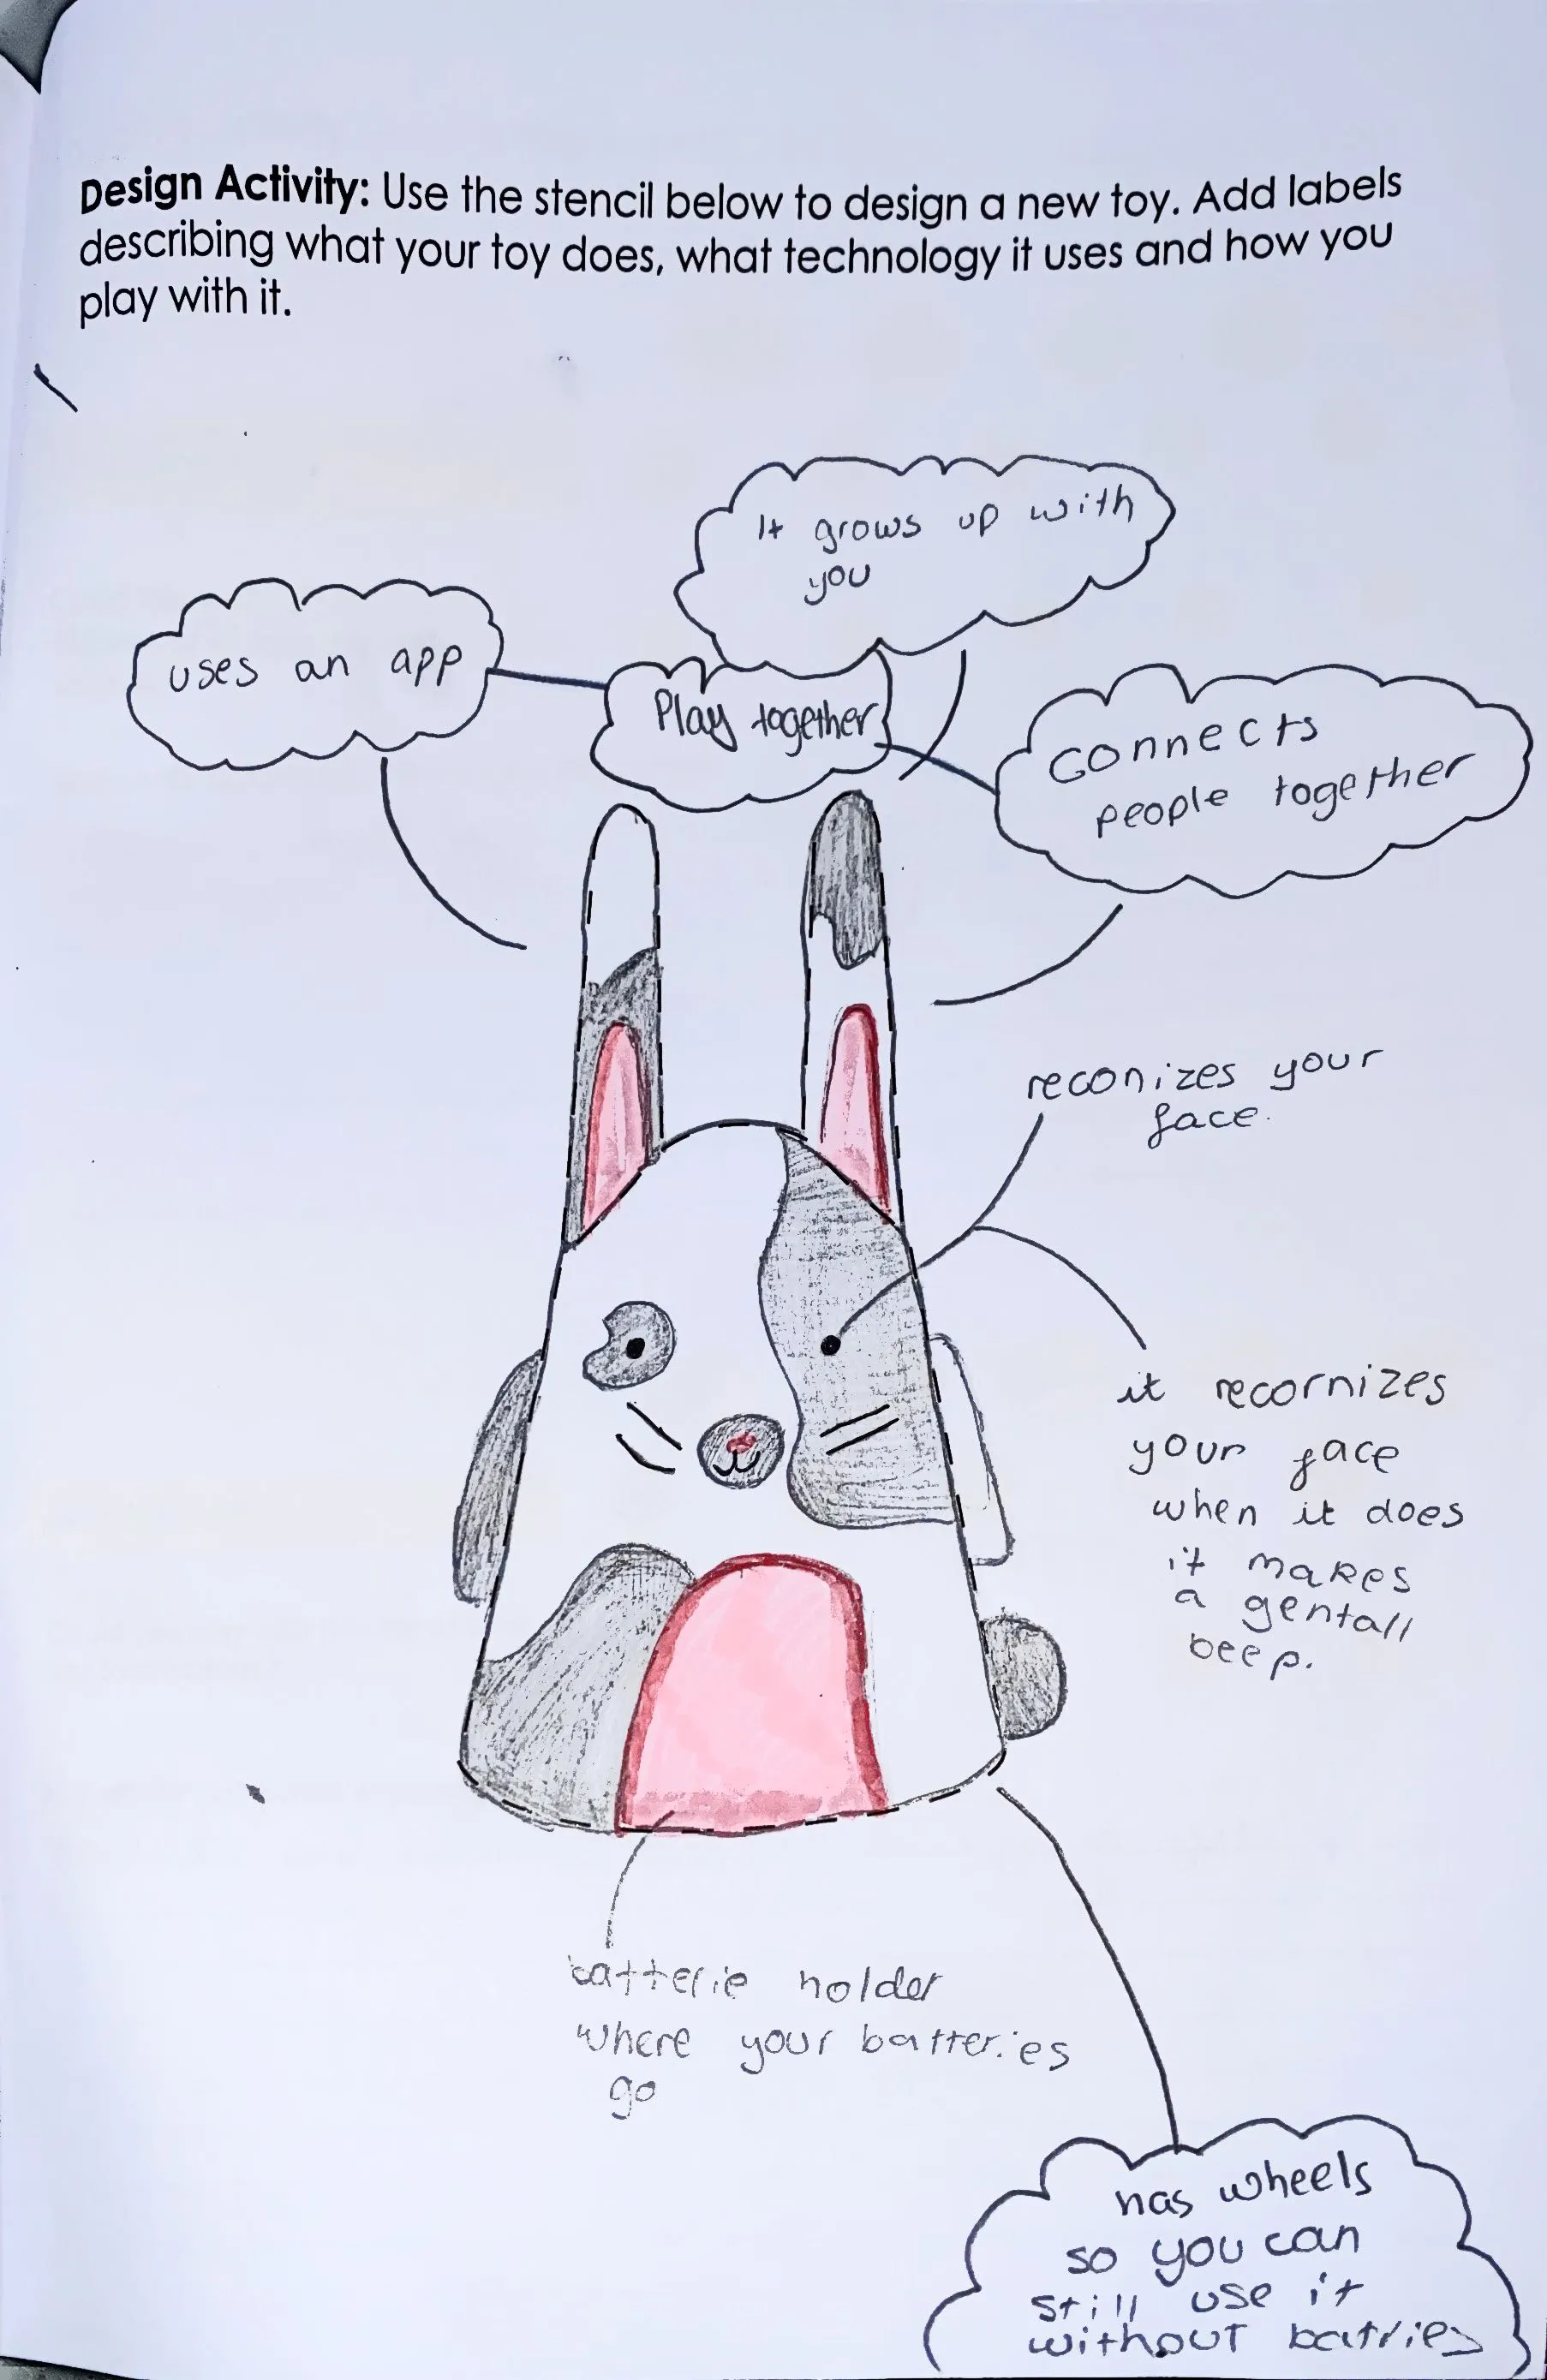 Design Activity: Use the stencil below to design a new toy. Add labels
describing what your toy does, what technology it uses and how you
play with it.
It grows up with
you
uses an app
Play together
connects
people together
reconizes your
face.
it recornizes
your face
when it does
it makes
a gentall
beep.
batterie holder
where your batteries
go
has wheels
so you can
still use it
without batries